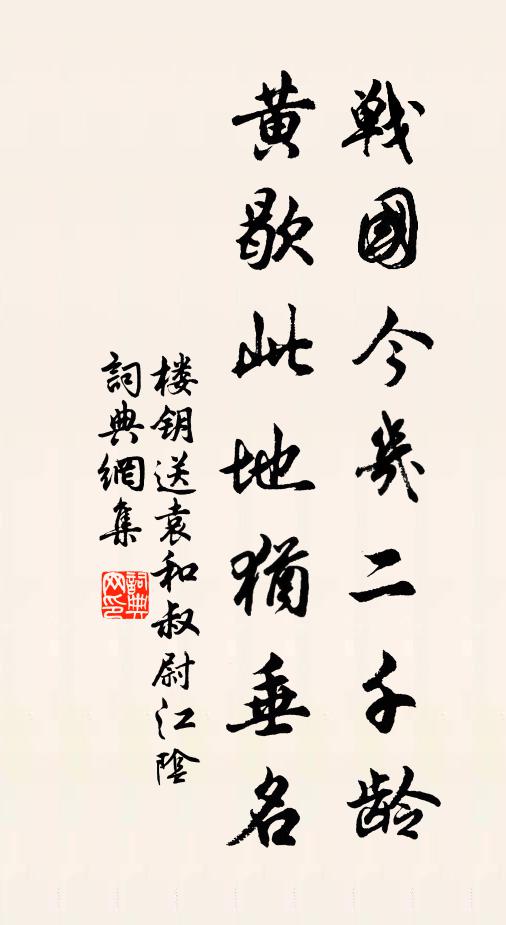 戦國今幾二千龄
黄歇此地猶垂名
楼钥送袁和叔尉江陰
詞典網集
詞典网印